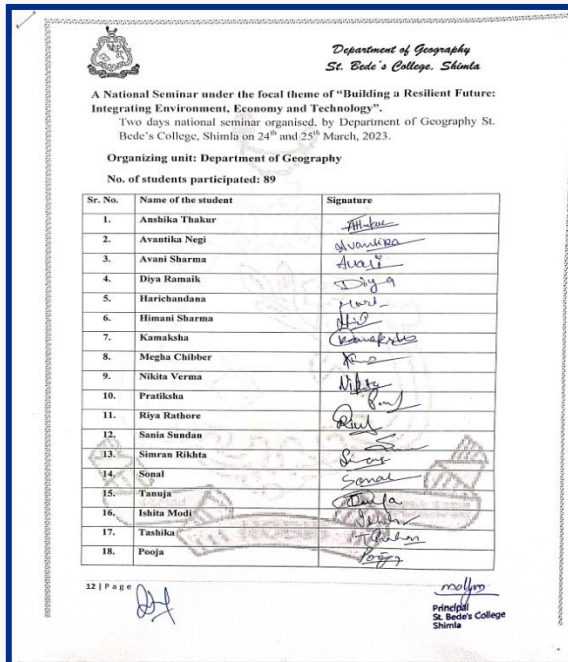 Department of Geography
St. Bede's College, Shimla
A National Seminar under the focal theme of “Building a Resilient Future:
Integrating Environment, Economy and Technology”.
Two days national seminar organised, by Department of Geography St.
Bede's College, Shimla on 24th and 25th March, 2023.
Organizing unit: Department of Geography
No. of students participated: 89
Sr. No. Name of the student Signature
1. Anshika Thakur
2. Avantika Negi Avantika
3. Avani Sharma Avani
4. Diya Ramaik Diya
5. Harichandana
6. Himani Sharma
7. Kamaksha Kamaksha
8. Megha Chibber
9. Nikita Verma Nikita
10. Pratiksha
11. Riya Rathore
12. Sania Sundan
13. Simran Rikhta
14. Sonal Sonal
15. Tanuja
16. Ishita Modi
17. Tashika
18. Pooja Pooja
12 | Page
Principal
St. Bede's College
Shimla